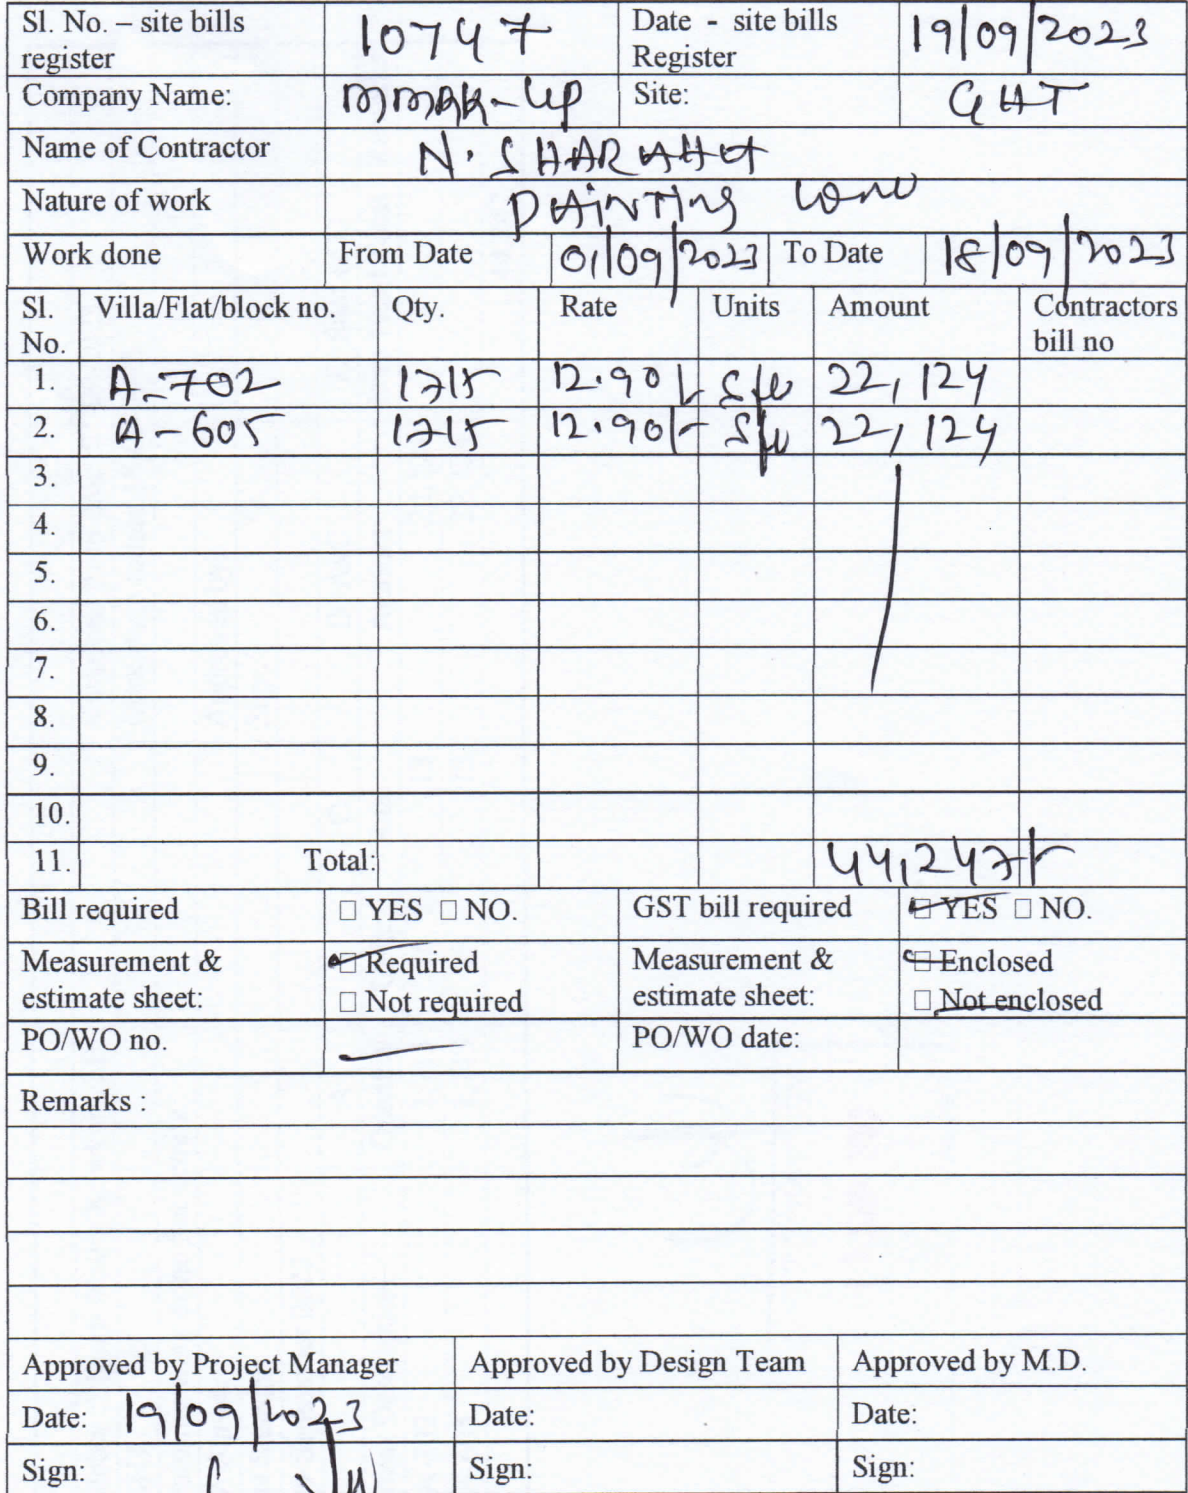 Sl. No. – site bills register 10747 Date - site bills Register 19/09/2023
Company Name: MMRK-UP Site: GHT
Name of Contractor N. SHARATH
Nature of work PAINTING WORK
Work done From Date 01/09/2023 To Date 18/09/2023
Sl. No. Villa/Flat/block no. Qty. Rate Units Amount Contractors bill no
1. A-702 1715 12.90/- 22,124
2. A-605 1715 12.90/- 22,124
3.
4.
5.
6.
7.
8.
9.
10.
11. Total: 44,247/-
Bill required □ YES □ NO. GST bill required □ YES □ NO.
Measurement & estimate sheet: □ Required □ Not required Measurement & estimate sheet: □ Enclosed □ Not enclosed
PO/WO no. PO/WO date:
Remarks :
Approved by Project Manager Approved by Design Team Approved by M.D.
Date: 19/09/2023 Date: Date:
Sign: Sign: Sign: